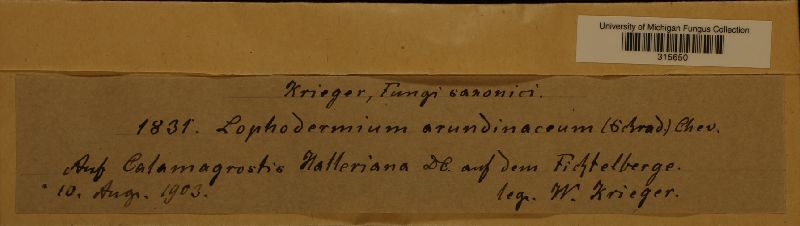 University of Michigan Fungus Collection
315650
Krieger, Fungi saxonici.
1831. Lophodermium arundinaceum (Schrad.) Chev.
Auf Calamagrostis Halleriana DC. auf dem Fichtelberge.
10. Aug. 1903. leg. W. Krieger.